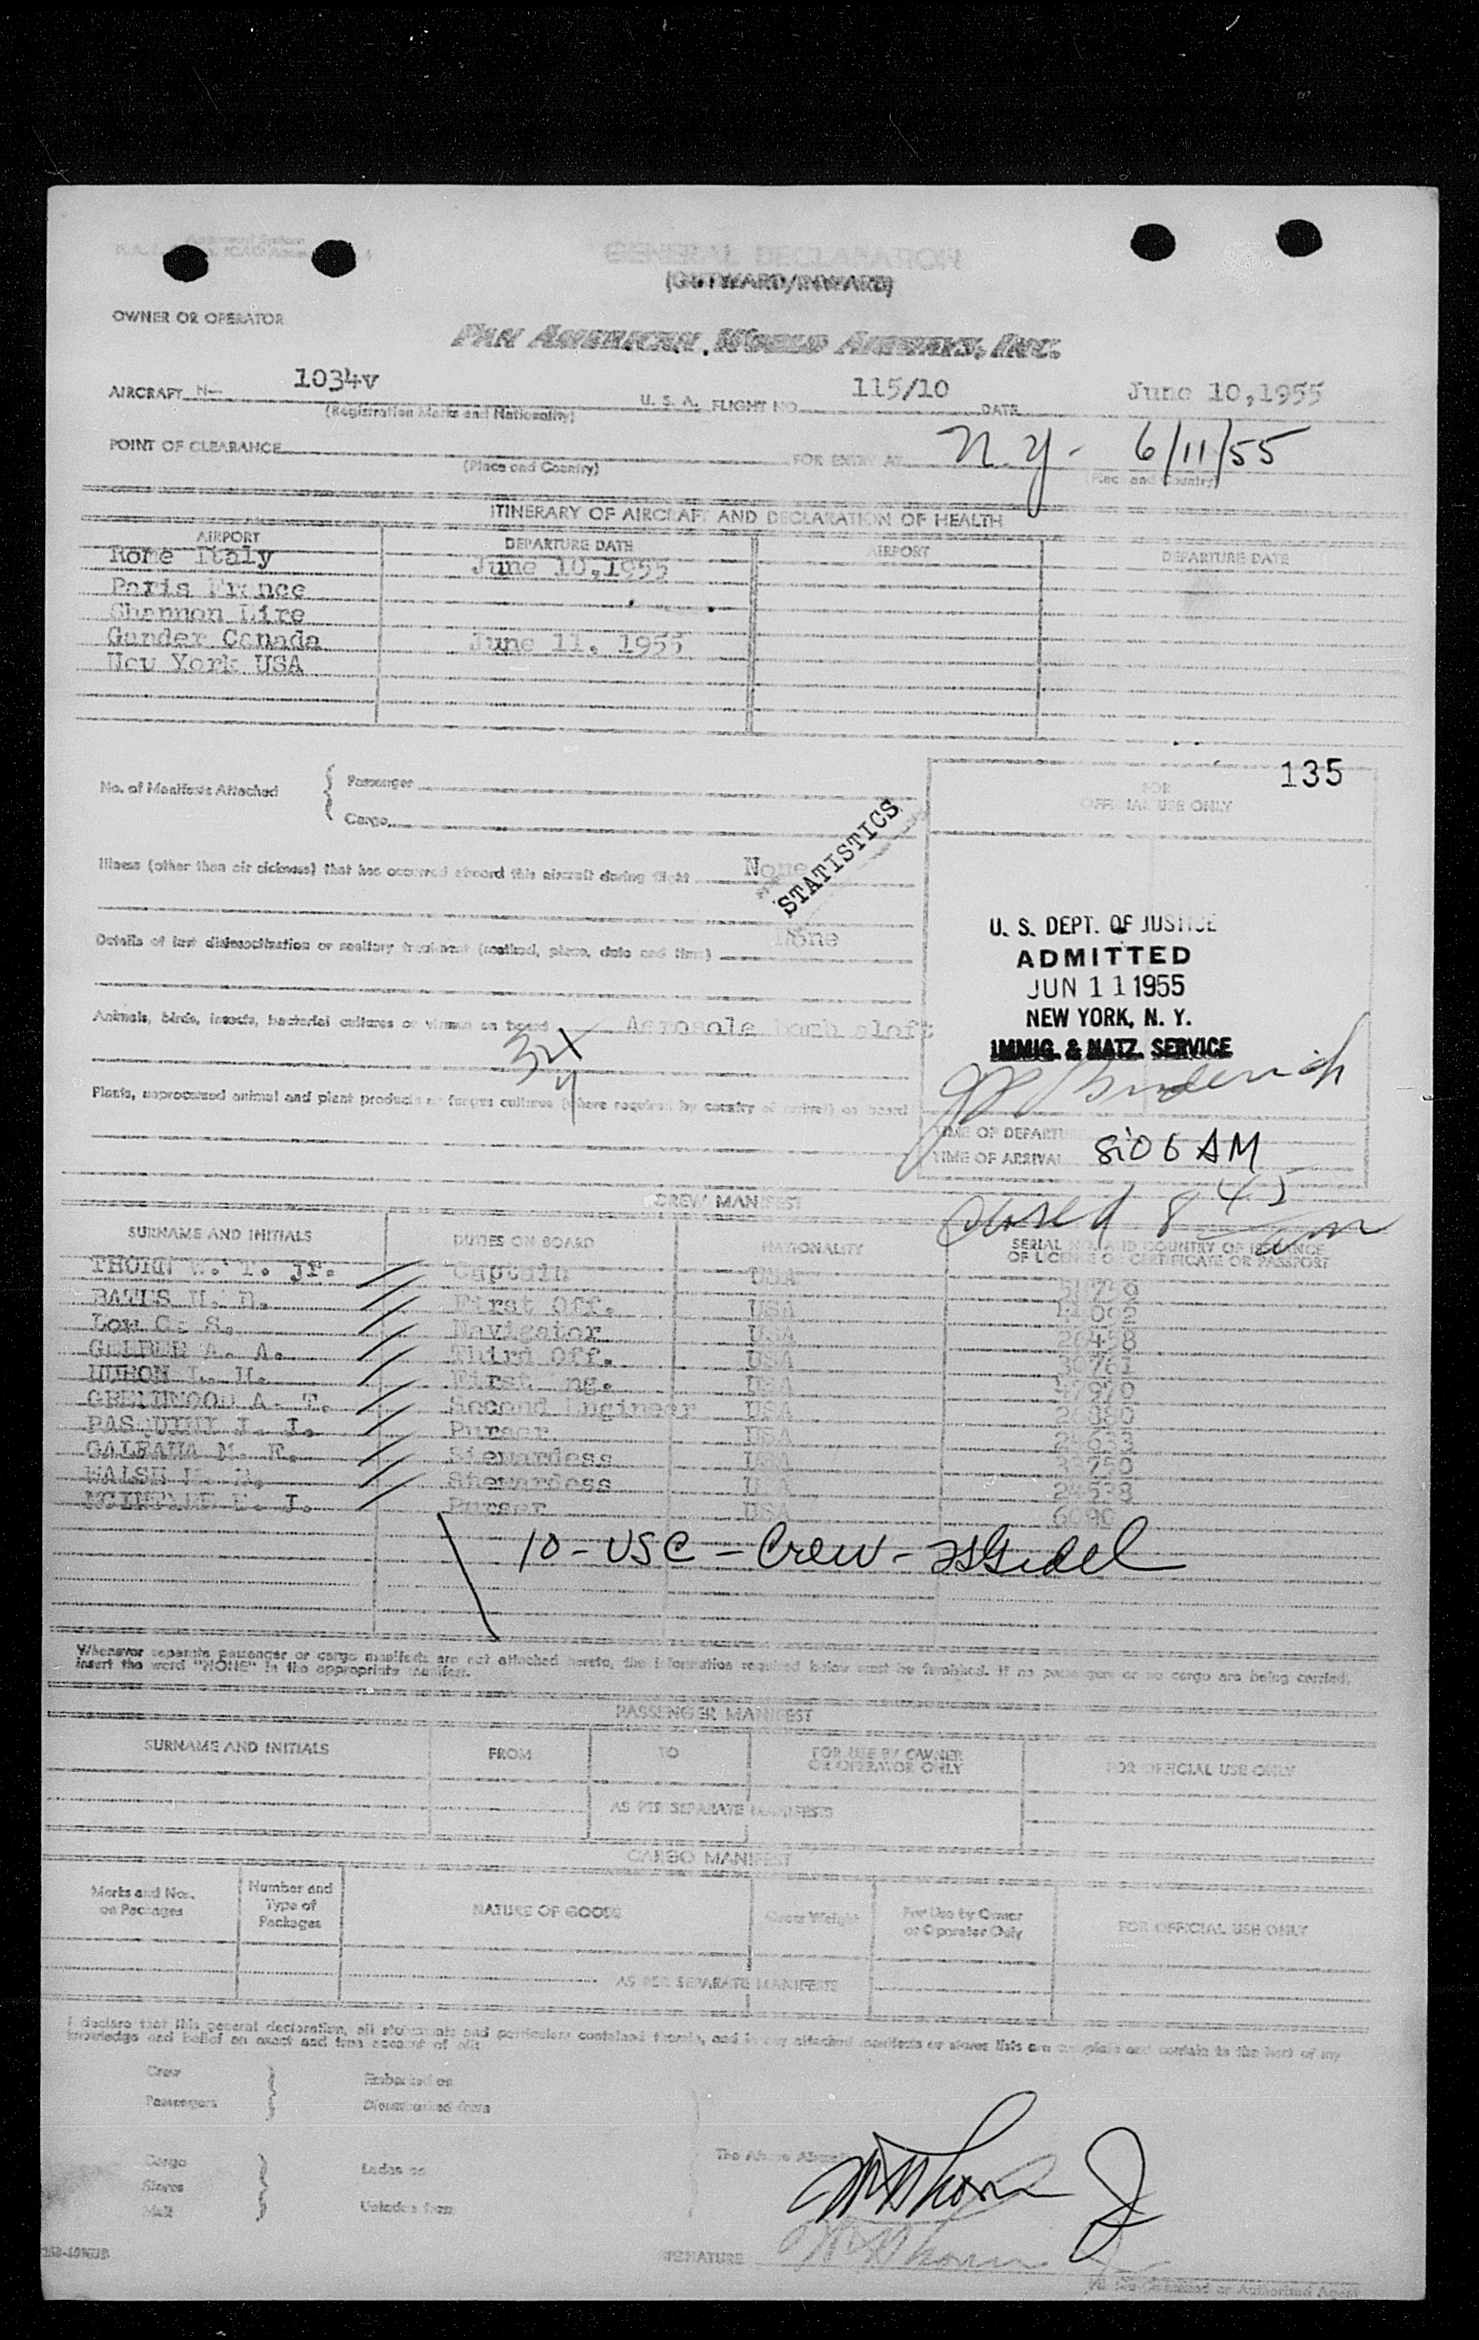 GENERAL DECLARATION
(OUTWARD/INWARD)
OWNER OR OPERATOR
PAN AMERICAN WORLD AIRWAYS, INC.
AIRCRAFT N- 1034v U. S. A. FLIGHT NO. 115/10 DATE June 10,1955
(Registration Marks and Nationality)
POINT OF CLEARANCE FOR ENTRY AT N.Y- 6/11/55
(Place and Country) (Place and Country)
ITINERARY OF AIRCRAFT AND DECLARATION OF HEALTH
AIRPORT DEPARTURE DATE AIRPORT DEPARTURE DATE
Rome Italy June 10,1955
Paris France
Shannon Eire
Gander Canada June 11, 1955
New York USA
135
No. of Manifests Attached { Passenger
Cargo
FOR
OFFICIAL USE ONLY
STATISTICS
Illness (other than air sickness) that has occurred aboard this aircraft during flight None
Details of last disinsectization or sanitary treatment (method, place, date and time) None
Animals, birds, insects, bacterial cultures or viruses on board Aerosole bomb aloft
34
Plants, unprocessed animal and plant products or fungus cultures (where required by country of arrival) on board
U. S. DEPT. OF JUSTICE
ADMITTED
JUN 11 1955
NEW YORK, N. Y.
IMMIG. & NATZ. SERVICE
TIME OF DEPARTURE
TIME OF ARRIVAL 8:06 AM
Closed 8 45 am
CREW MANIFEST
SURNAME AND INITIALS DUTIES ON BOARD NATIONALITY SERIAL NO. AND COUNTRY OF ISSUANCE
OF LICENSE OR CERTIFICATE OR PASSPORT
THORN W. T. jr. Captain USA
BATES First Off. USA
Low C. S. Navigator USA 26458
A. A. Third Off. USA 30761
L. H. First Eng. USA 47970
GREENWOOD A. T. Second Engineer USA
PASQUINI J. J. Purser USA
M. F. Stewardess USA
WALSH Stewardess USA 24538
J. Purser USA 6090
10 - USC - Crew -
Whenever separate passenger or cargo manifests are not attached hereto, the information required below must be furnished. If no passengers or no cargo are being carried,
insert the word "NONE" in the appropriate manifest.
PASSENGER MANIFEST
SURNAME AND INITIALS FROM TO FOR USE BY OWNER
OR OPERATOR ONLY FOR OFFICIAL USE ONLY
AS PER SEPARATE MANIFESTS
CARGO MANIFEST
Marks and Nos.
on Packages Number and
Type of
Packages NATURE OF GOODS Gross Weight For Use by Owner
or Operator Only FOR OFFICIAL USE ONLY
AS PER SEPARATE MANIFESTS
I declare that this general declaration, all statements and particulars contained therein, and in any attached manifests or stores lists are complete and contain to the best of my
knowledge and belief an exact and true account of all:
Crew } Embarked on
Passengers Disembarked from
Cargo } Laden on
Stores
Mail Unladen from
The Above Aircraft
SIGNATURE
or Authorized Agent